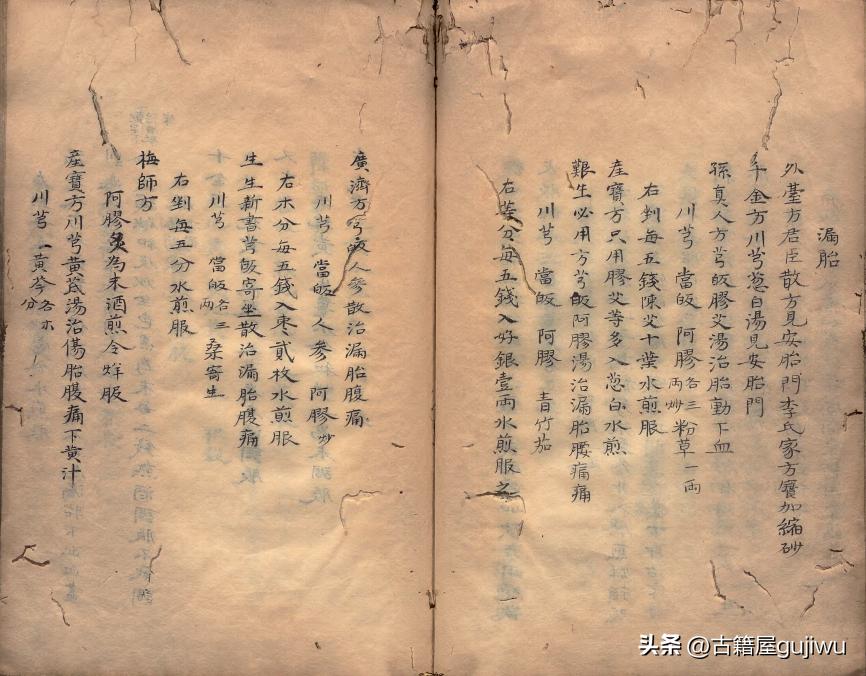 漏胎
外臺方君臣散方見安胎門李氏家方寶加縮砂
千金方川芎葱白湯見安胎門
孫真人方芎皈膠艾湯治胎動下血
川芎 當皈 阿膠各三两炒 粉草一两
右剉每五錢陳艾十葉水煎服
産寶方只用膠艾等多入葱白水煎
艱生必用方芎皈阿膠湯治漏胎腰痛痛
川芎 當皈 阿膠 青竹茄
右等分每五錢入好銀壹两水煎服之
廣濟方芎皈人參散治漏胎腹痛
川芎 當皈 人參 阿膠炒
右等分每五錢入枣貳枚水煎服
生生新書芎皈寄生散治漏胎腹痛
川芎 當皈各三两 桑寄生
右剉每五分水煎服
梅師方
阿膠炙為末酒煎令烊服
産寶方川芎黄芪湯治傷胎腹痛下黄汁
川芎一 黄芩各 分
头条 @古籍屋gujiwu